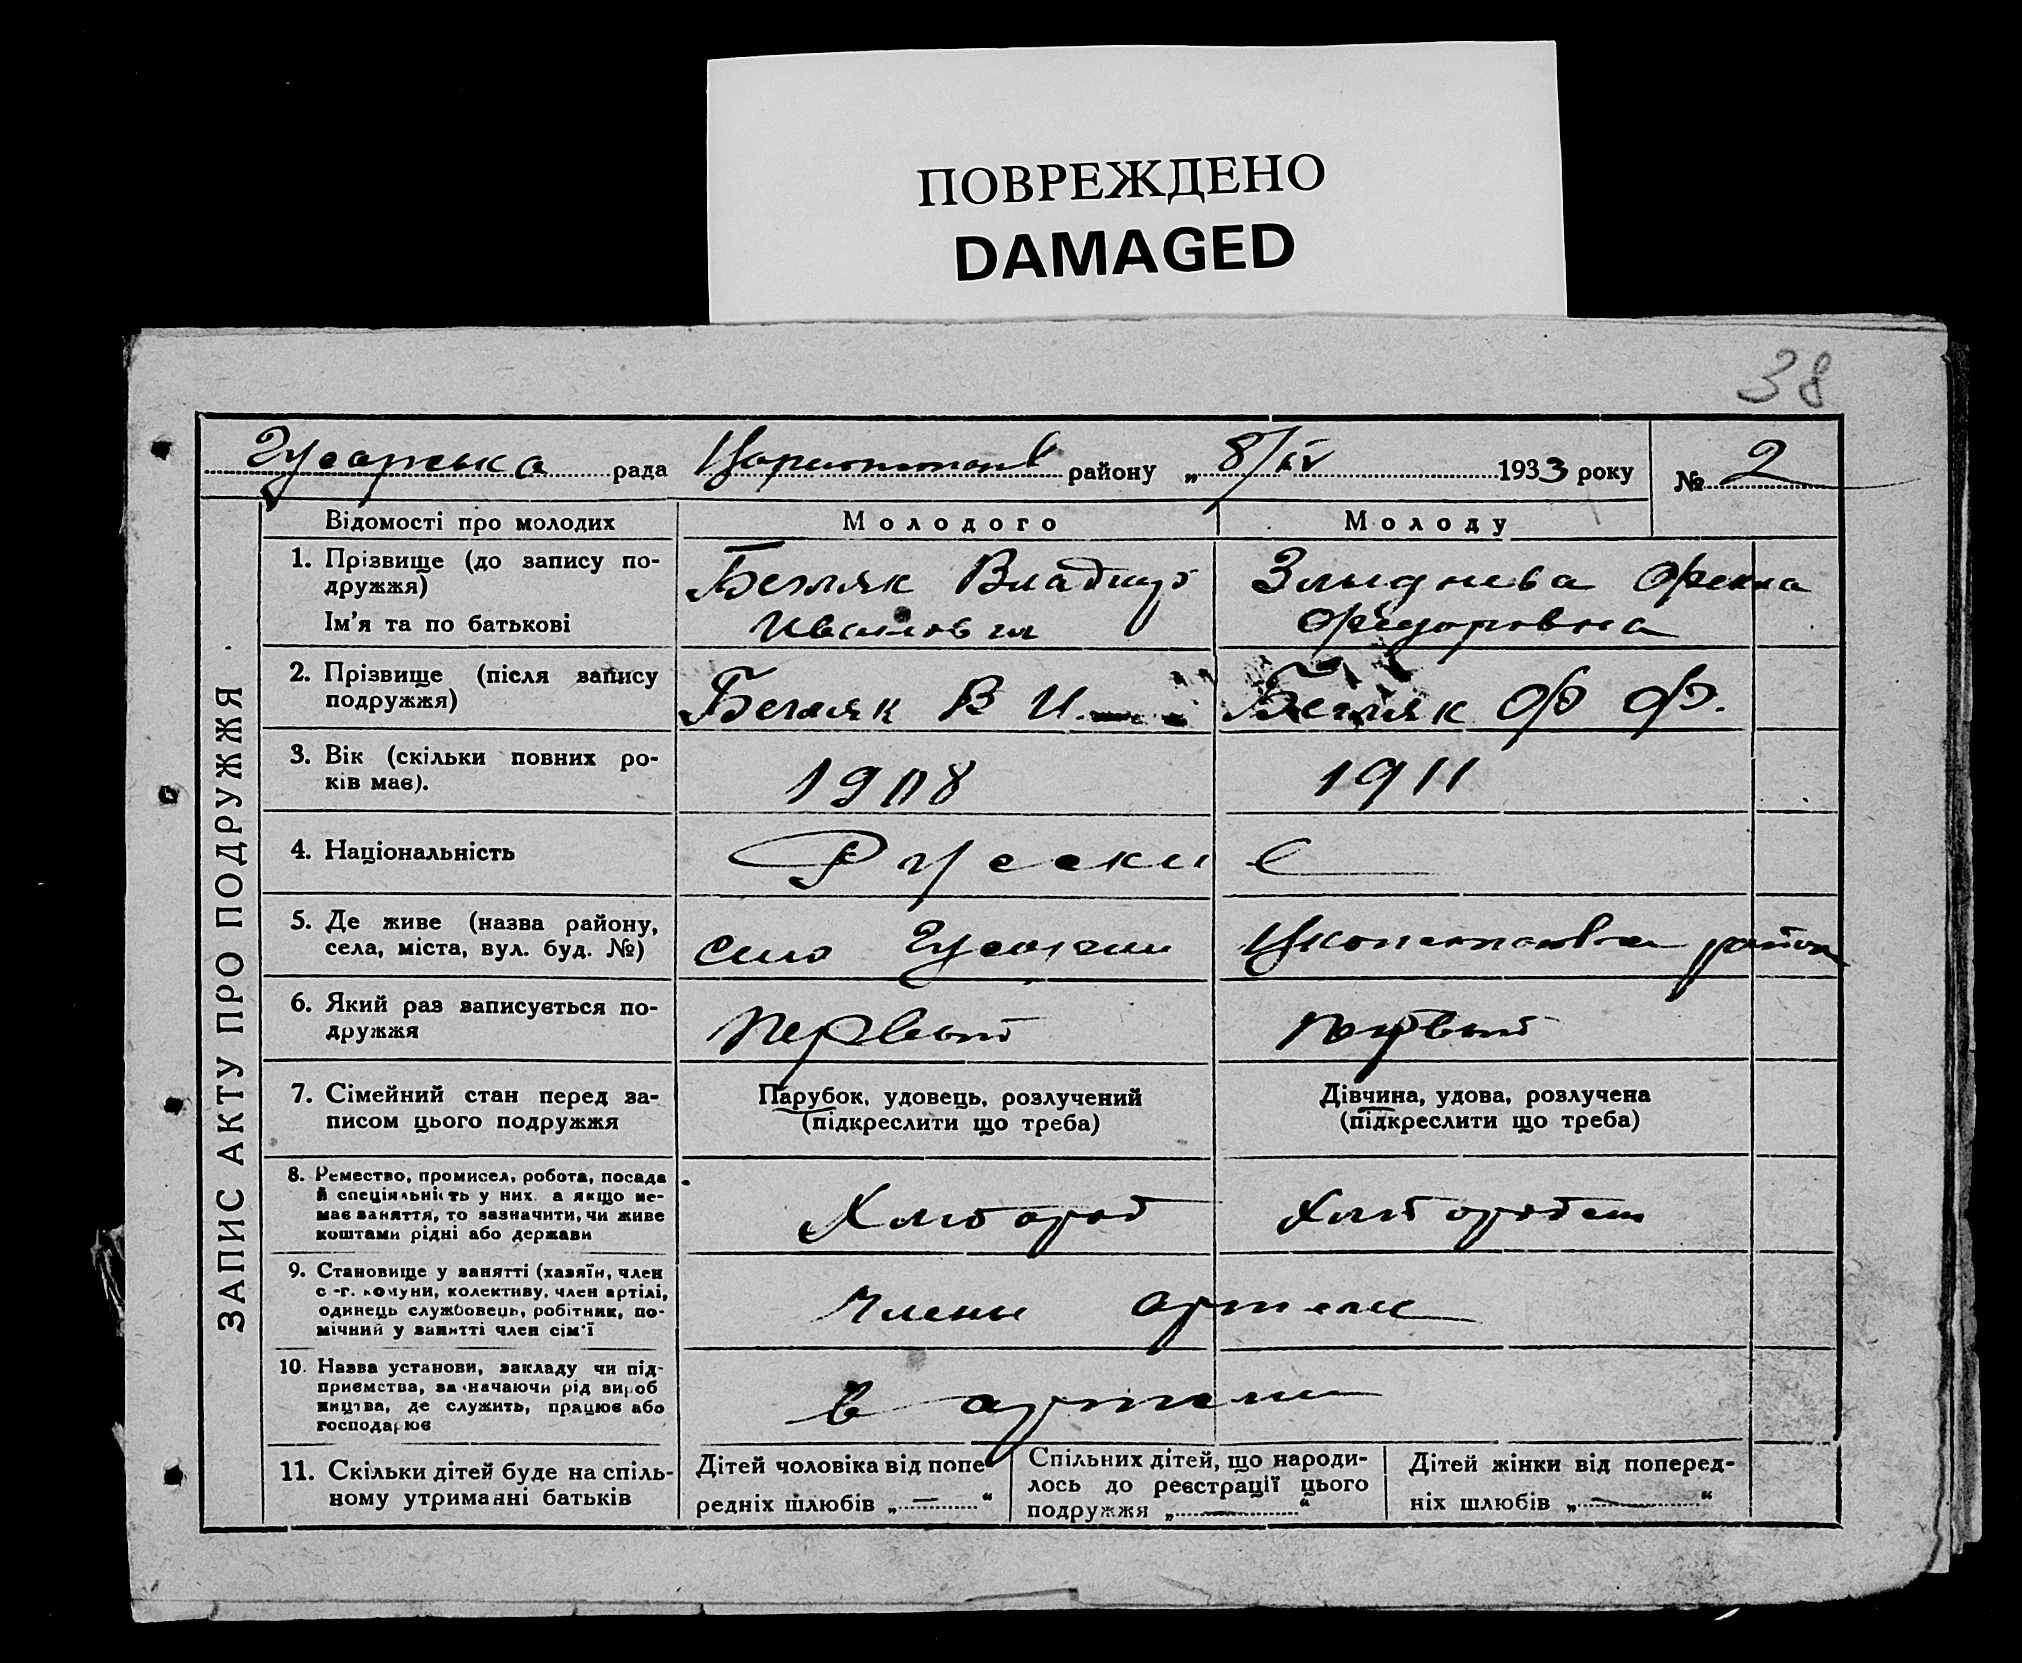 ПОВРЕЖДЕНО
DAMAGED
38
Гусарська рада району „ 8/IV 1933 року № 2
ЗАПИС АКТУ ПРО ПОДРУЖЖЯ
Відомості про молодих Молодого Молоду
1. Прізвище (до запису по-
дружжя)
Ім'я та по батькові
Безляк Владимір
Иванович
Злыднева Фекла
Фёдоровна
2. Прізвище (після запису
подружжя)
Безляк В И.
Безляк Ф Ф.
3. Вік (скільки повних ро-
ків має).
1908
1911
4. Національність
Русские
5. Де живе (назва району,
села, міста, вул. буд. №)
село район
6. Який раз записується по-
дружжя
Первый
первый
7. Сімейний стан перед за-
писом цього подружжя
Парубок, удовець, розлучений
(підкреслити що треба)
Дівчина, удова, розлучена
(підкреслити що треба)
8. Ремество, промисел, робота, посада
й спеціяльність у них, а якщо не-
має заняття, то зазначити, чи живе
коштами рідні або держави
9. Становище у занятті (хазяїн, член
с.-г. комуни, колективу, член артілі,
одинець службовець, робітник, по-
мічний у занятті член сім'ї
Члены артели
10. Назва установи, закладу чи під-
приємства, зазначаючи рід вироб
ництва, де служить, працює або
господарює
в артели
11. Скільки дітей буде на спіль-
ному утриманні батьків
Дітей чоловіка від попе-
редніх шлюбів „ — “
Спільних дітей, що народи-
лось до реєстрації цього
подружжя „ — “
Дітей жінки від поперед-
ніх шлюбів „ — “